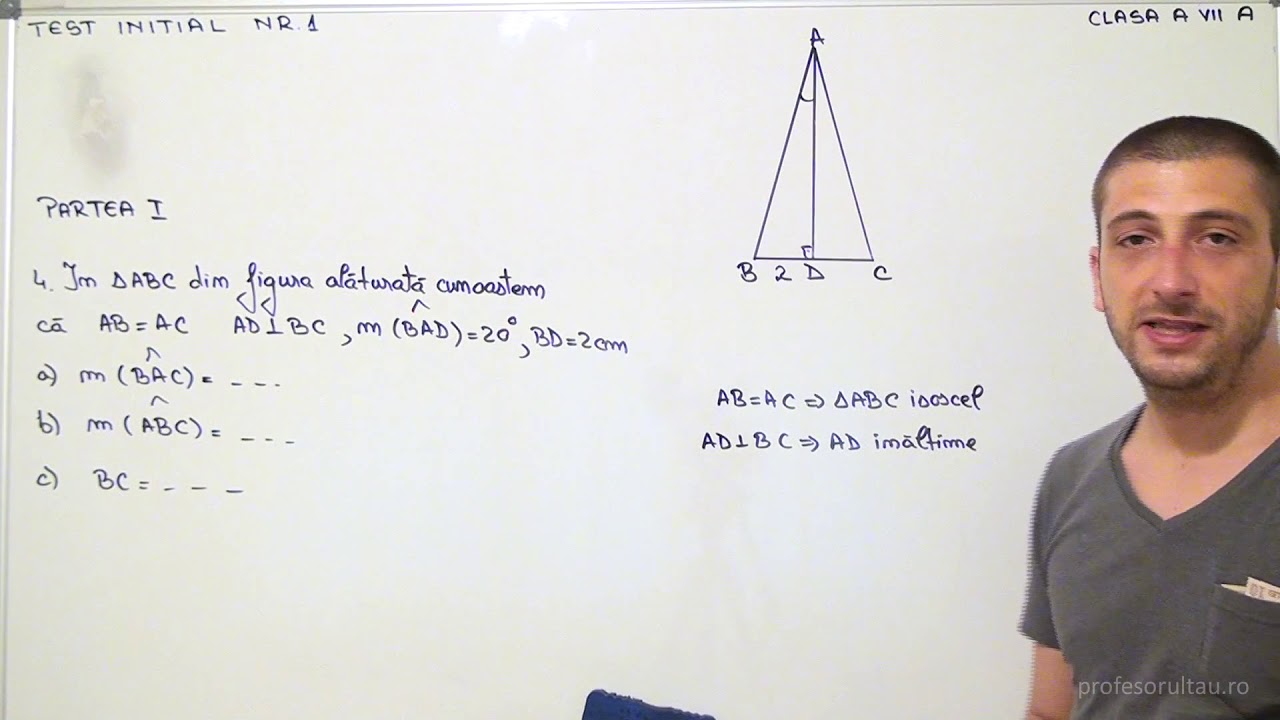 TEST INITIAL NR. 1
CLASA A VII A
A
B 2 D C
PARTEA I
4. În ΔABC din figura alăturată cunoastem
că AB = AC AD⊥BC, m(BAD) = 20°, BD = 2cm
a) m(BAC) = _ _ _.
b) m(ABC) = _ _ _
c) BC = _ _ _
AB = AC ⇒ ΔABC isoscel
AD⊥BC ⇒ AD înăltime
profesorultau.ro